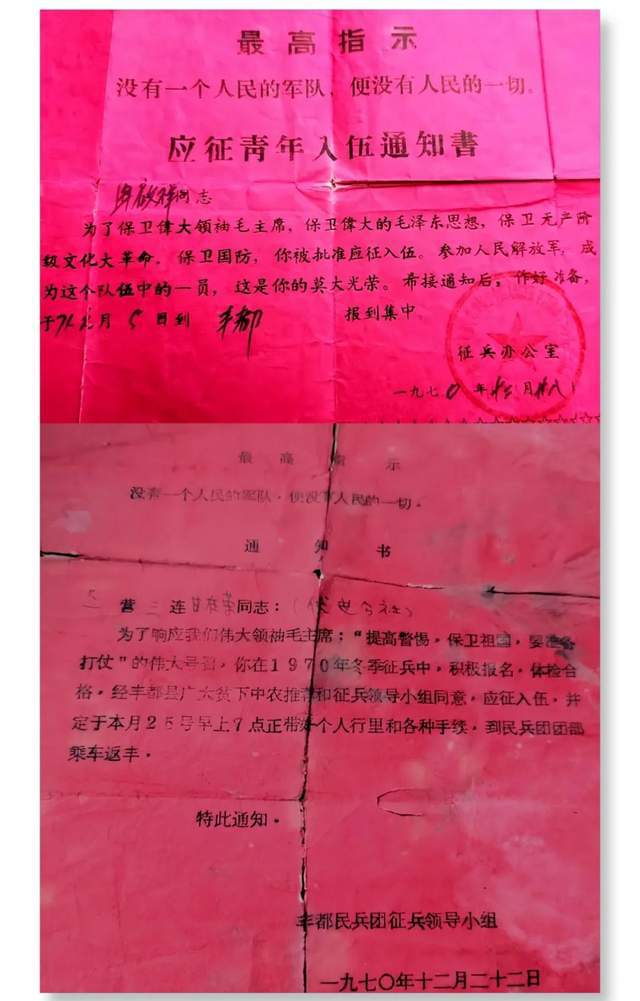 最高指示
没有一个人民的军队，便没有人民的一切。
应征青年入伍通知書
同志
为了保卫偉大领袖毛主席，保卫偉大的毛泽东思想，保卫无产阶
级文化大革命，保卫国防，你被批准应征入伍。参加人民解放军，成
为这个队伍中的一員，这是你的莫大光荣。希接通知后，作好准备，
于71年 月5日到 丰都 报到集中。
征兵办公室
一九七〇年十二月廿八日
最高指示
没有一个人民的军队，便没有人民的一切。
通知书
营三连 同志：
为了响应我们伟大领袖毛主席：“提高警惕，保卫祖国，要准备
打仗”的伟大号召，你在1970年冬季征兵中，积极报名，体检合
格，经丰都县广大贫下中农推荐和征兵领导小组同意，应征入伍，并
定于本月25号早上7点正带好个人行里和各种手续，到民兵团团部
乘车返丰．
特此通知．
丰都民兵团征兵领导小组
一九七〇年十二月二十二日